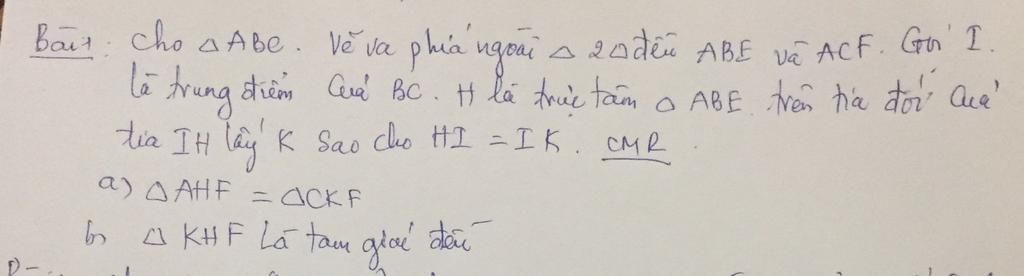 Bài 1: Cho △ABC. Vẽ va phía ngoài △ 2△ đều ABE và ACF. Gọi I.
là trung điểm của BC. H là trực tâm △ ABE. trên tia đối của
tia IH lấy K sao cho HI = IK. CMR.
a) △AHF = △CKF
b) △ KHF là tam giác đều